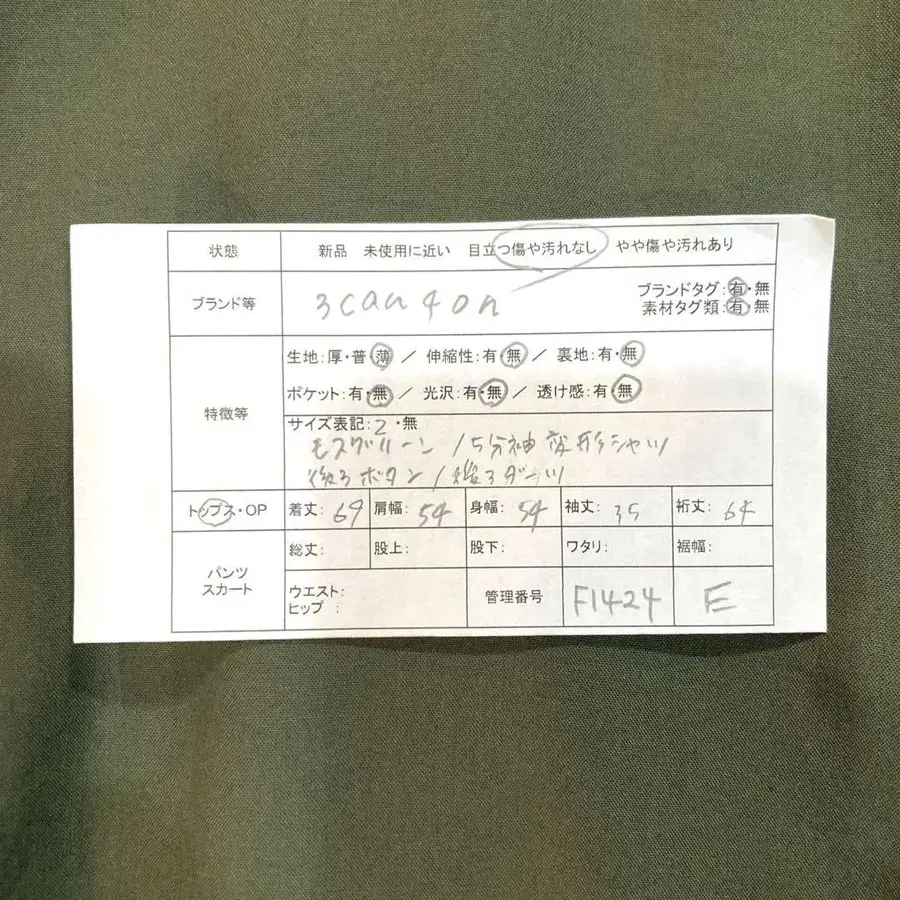 状態 新品 未使用に近い 目立つ傷や汚れなし やや傷や汚れあり
ブランド等 3can4on ブランドタグ:有・無
素材タグ類:有・無
特徴等 生地:厚・普・薄 / 伸縮性:有・無 / 裏地:有・無
ポケット:有・無 / 光沢:有・無 / 透け感:有・無
サイズ表記:2・無
モスグリーン/5分袖変形シャツ
後ろボタン/後ろダーツ
トップス・OP 着丈:69 肩幅:54 身幅:54 袖丈:35 裄丈:64
パンツ スカート 総丈: 股上: 股下: ワタリ: 裾幅:
ウエスト:
ヒップ : 管理番号 F1424 E